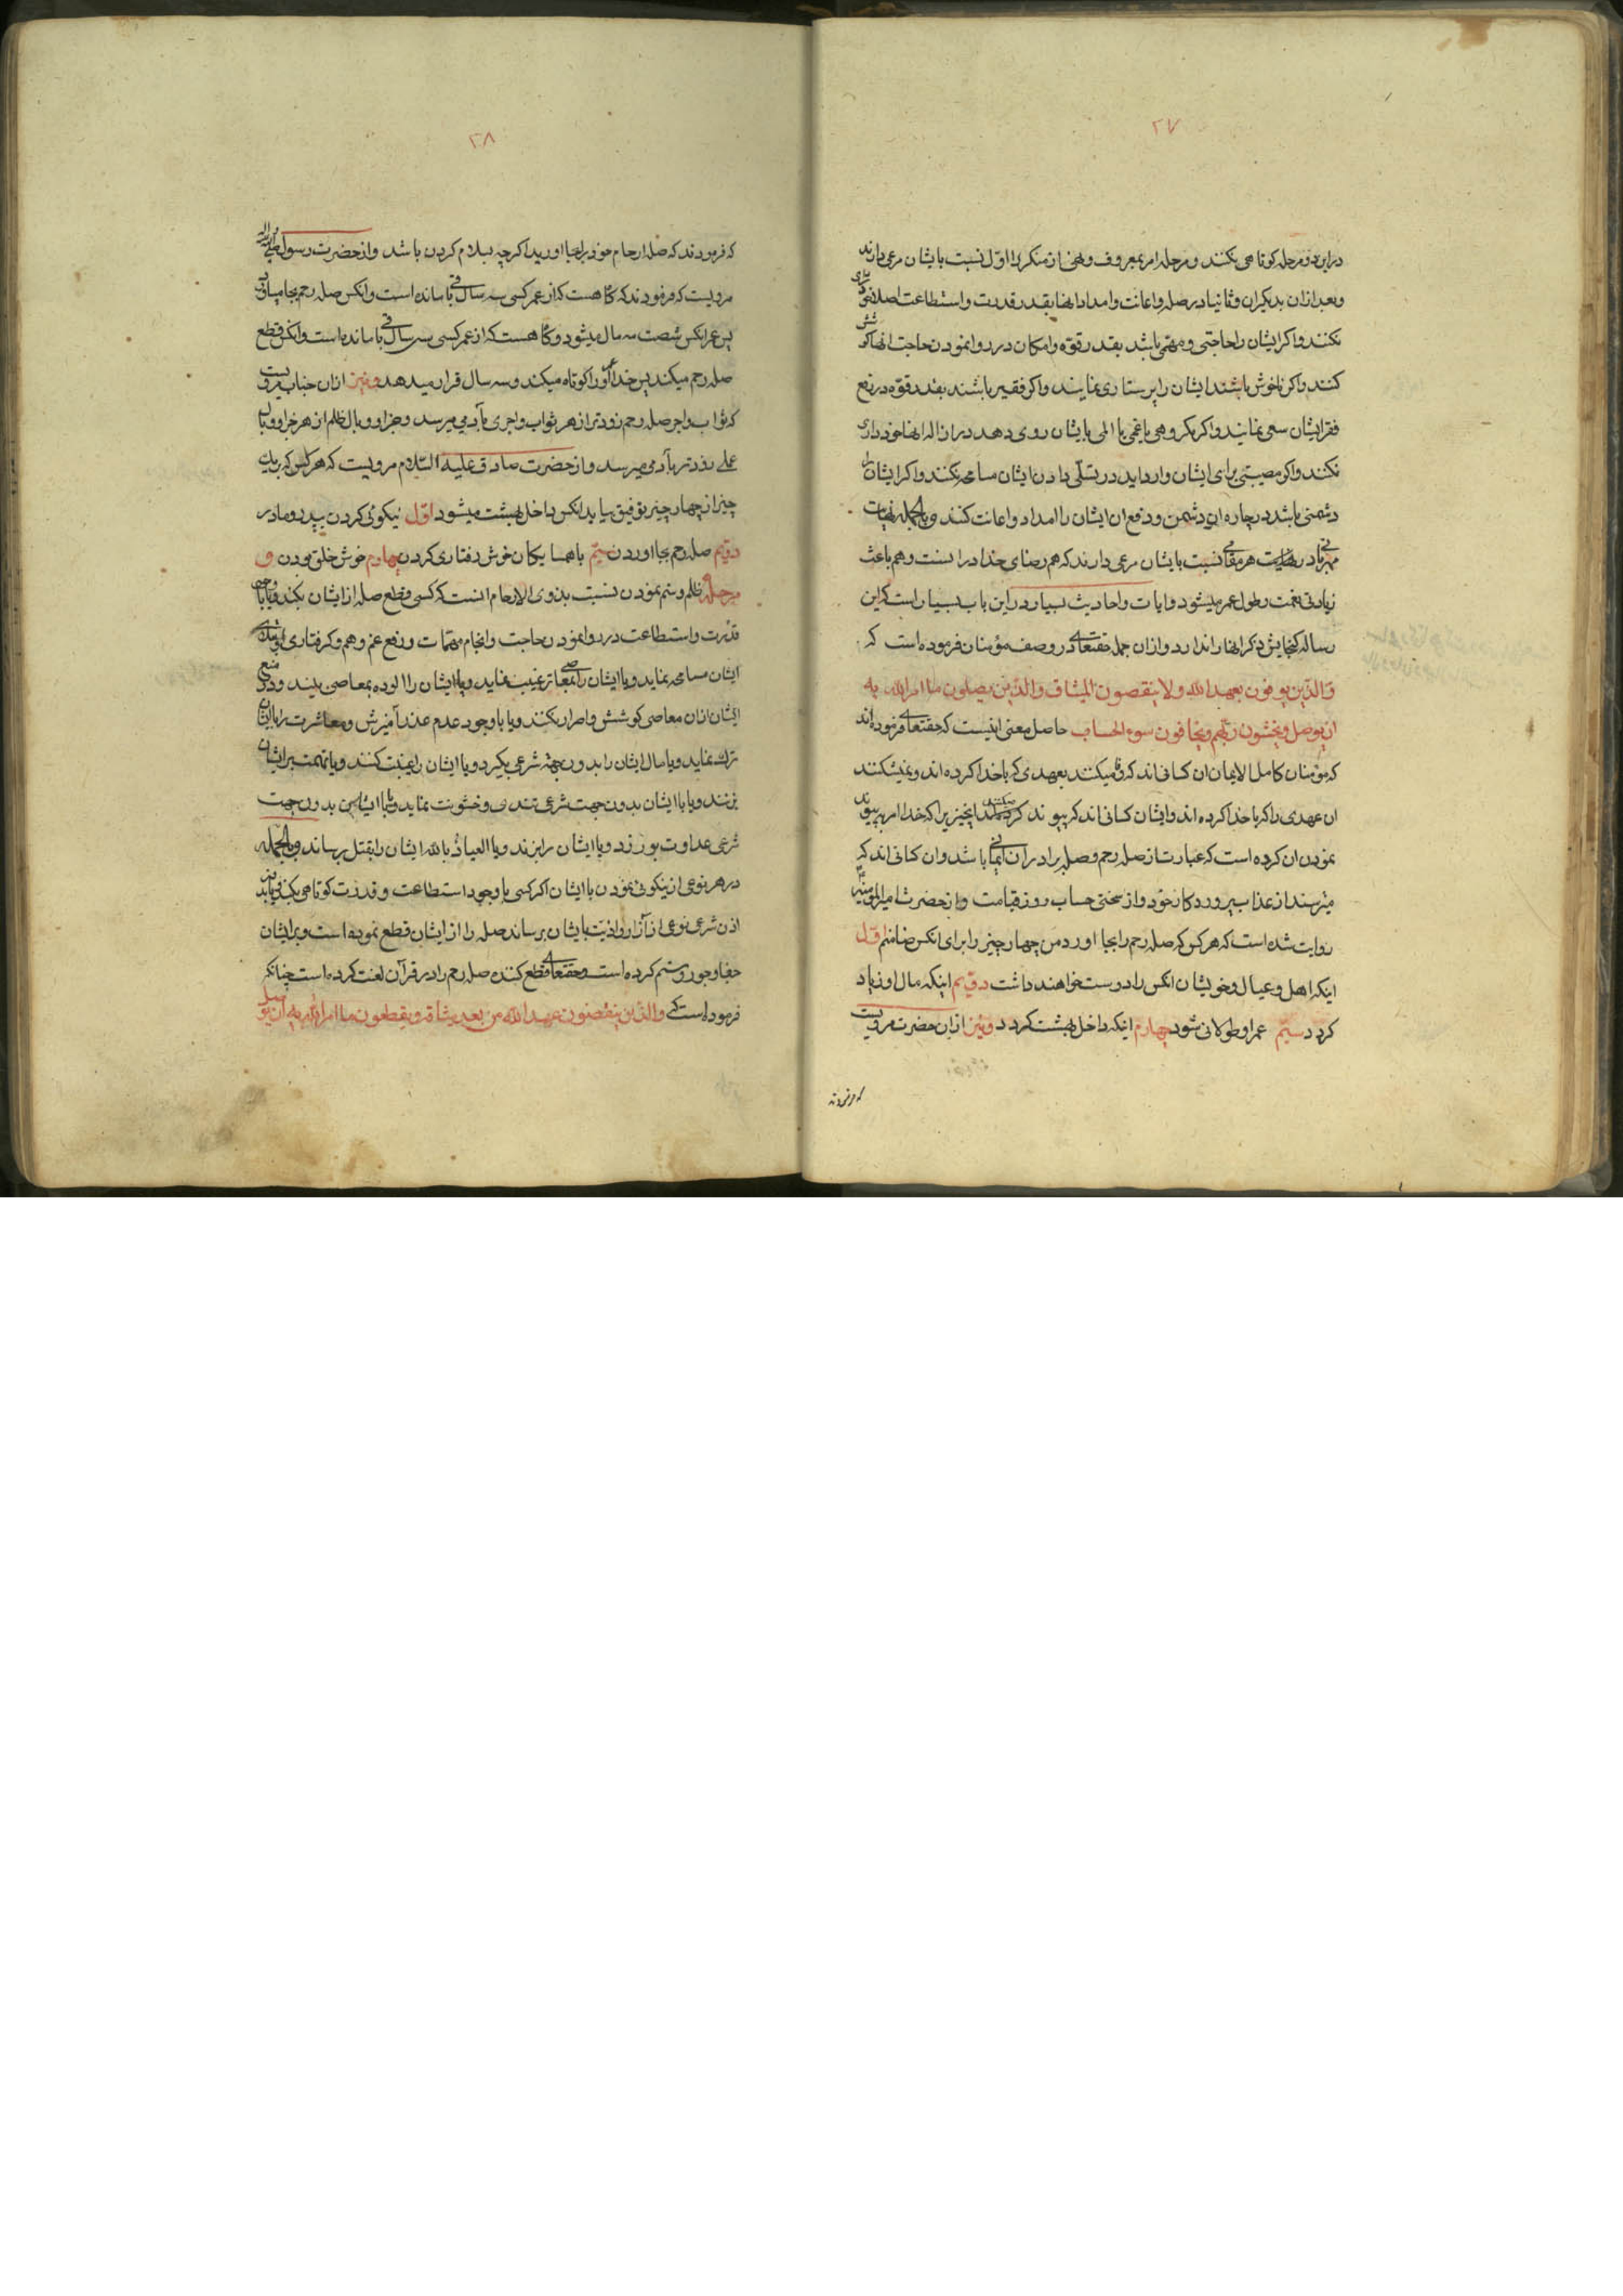 ۲۷
در این دو مرحله کوتاهی نکنند و مرحله امر بمعروف و نهی از منکر را اوّل نسبت بایشان مرعی دارند
و بعد از ان بدیکران و ثانیا در صله و اعانت و امداد انها بقدر قدرت و استطاعت اصلا کوتاهی
نکنند و اکر ایشان را حاجتی و مهمّی باشد بقدر قوّه و امکان در روا نمودن حاجت انها کوشش
کنند و اکر ناخوش باشند ایشان را پرستاری نمایند و اکر فقیر باشند بقدر قوّه در رفع
فقر ایشان سعی نمایند و اکر مکروهی یا غمی یا المی بایشان روی دهد در ازاله انها خودداری
نکنند و اکر مصیبتی برای ایشان وارد اید در تسلّی دادن ایشان مسامحه نکنند و اکر ایشان را
دشمنی باشد در چاره ان دشمن و دفع ان ایشان را امداد و اعانت کنند و بالجمله نهایت
مهربانی در هر مقامی نسبت بایشان مرعی دارند که هم رضای خدا در انست و هم باعث
زیادتی نعمت و طول عمر میشود و ایات و احادیث بسیار در این باب بسیار است که این
رساله کنجایش ذکر انها را ندارد و از ان جمله حقتعالی در وصف مؤمنان فرموده است که
وَالَّذین یوفون بعهد الله ولا ینقضون المیثاق والَّذین یصلون ما امر الله به
ان یوصل ویخشون ربّهم ویخافون سوء الحساب حاصل معنی اینست که حقتعالی فرموده اند
که مؤمنان کامل الایمان ان کسانی اند که وفا میکنند بعهدی که با خدا کرده اند و نمیشکنند
ان عهدی را که با خدا کرده اند و ایشان کسانی اند که پیوند میکنند انچیزیرا که خدا امر به پیوند
نمودن ان کرده است که عبارت از صله رحم و صله برادران ایمانی باشد و ان کسانی اند که
میترسند از عذاب پروردکار خود و از سختی حساب روز قیامت و از حضرت امیرالمؤمنین
روایت شده است که هر کس که صله رحم را بجا اورد من چهار چیز را برای انکس ضامنم اوّل
اینکه اهل و عیال و خویشان انکس را دوست خواهند داشت دویّم اینکه مال او زیاد
کردد سیّم عمر او طولانی شود چهارم اینکه داخل بهشت کردد و نیز از ان حضرت مرویست
که فرمودند
۲۸
که فرمودند که صله ارحام خود را بجا اورید اکرچه بسلام کردن باشد و از حضرت رسول صلی الله
مرویست که فرمودند که کاه هست که از عمر کسی سه سال باقی مانده است و انکس صله رحم بجا میاورد
پس عمر انکس شصت سال میشود و کاه هست که از عمر کسی سی سال باقی مانده است و انکس قطع
صله رحم میکند پس خدا عمر او را کوتاه میکند و سه سال قرار میدهد و نیز از ان جناب مرویست
که ثواب و اجر صله رحم زودتر از هر ثواب و اجری بآدمی میرسد و جزا و وبال ظلم از هر جزا و وبال
عملی زودتر بآدمی میرسد و از حضرت صادق علیه السّلام مرویست که هر کس که بیک
چیز از چهار چیز توفیق بیابد انکس داخل بهشت میشود اوّل نیکوئی کردن بپدر و مادر
دویّم صله رحم بجا اوردن سیّم با همسایکان خوش رفتاری کردن چهارم خوش خلق بودن و
مرحله ظلم و ستم نمودن نسبت بذوی الارحام انست که کسی قطع صله از ایشان بکند و یا با وجود
قدرت و استطاعت در روا نمودن حاجت و انجام مهمّات و رفع غم و هم و کرفتاری
ایشان مسامحه نماید و یا ایشان را بمعاصی ترغیب نماید و یا ایشان را الوده بمعاصی بیند و در منع
ایشان از ان معاصی کوشش و اصرار نکنند و یا با وجود عدم عذر آمیزش و معاشرت را با ایشان
ترک نماید و یا مال ایشان را بدون جهة شرعی بکیرد و یا ایشان را غیبت کنند و یا تهمت بر ایشان
بزنند و یا با ایشان بدون جهت شرعی تندی و خشونت نماید و یا با ایشان بدون جهت
شرعی عداوت بورزد و یا ایشان را بزند و یا العیاذ بالله ایشان را بقتل برساند و بالجمله
در هر نوعی از نیکوئی نمودن با ایشان اکر کسی با وجود استطاعت و قدرت کوتاهی بکند و یا بدون
اذن شرعی نوعی از آزار و اذیت بایشان برساند صله را از ایشان قطع نموده است و بر ایشان
جفا و جور و ستم کرده است و حقتعالی قطع کننده صله رحم را در قرآن لعنت کرده است چنانکه
فرموده است که والَّذین ینقضون عهد الله من بعد میثاقه ویقطعون ما امر الله به ان یوصل